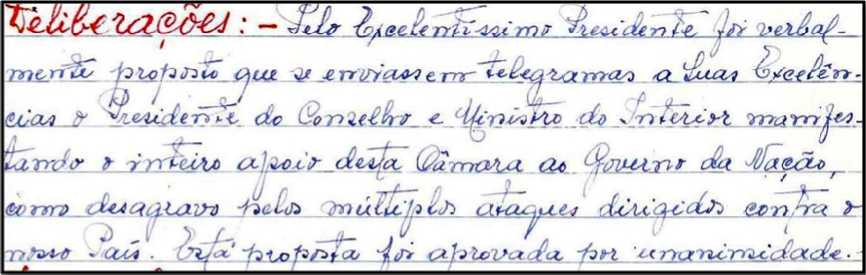 Deliberações: - Pelo Excelentíssimo Presidente foi verbal-
mente proposto que se enviassem telegramas a Suas Excelên-
cias o Presidente do Conselho e Ministro do Interior manifes-
tando o inteiro apoio desta Câmara ao Governo da Nação,
como desagravo pelos múltiplos ataques dirigidos contra o
nosso País. Esta proposta foi aprovada por unanimidade.